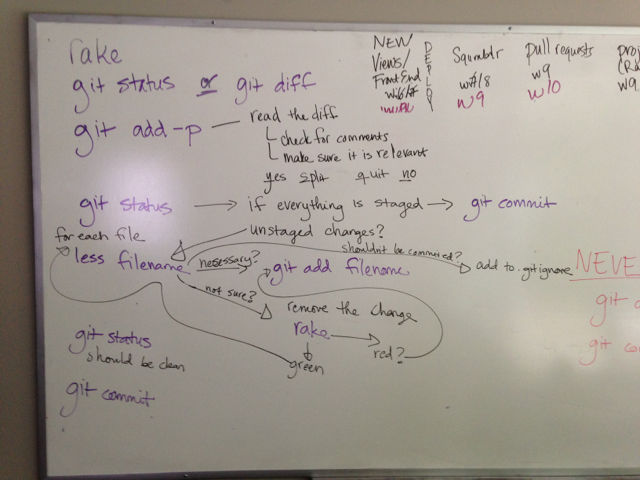 rake
git status or git diff
git add -p
read the diff
check for comments
make sure it is relevant
yes split quit no
git status → if everything is staged → git commit
unstaged changes?
for each file
less filename
necessary?
git add filename
shouldn't be commited?
add to .gitignore
not sure?
remove the change
rake
red?
green
git status
should be clean
git commit
NEW
Views/
FrontEnd
DEPLOY
Squmblr
w9
Pull requests
w9
w10
w9
NEVE
git
git co